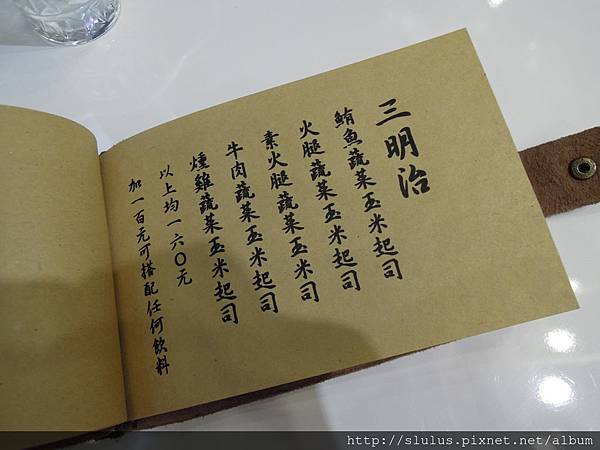 三明治
鮪魚蔬菜玉米起司
火腿蔬菜玉米起司
素火腿蔬菜玉米司
牛肉蔬菜玉米起司
燻雞蔬菜玉米起司
以上均一六〇元
加一百元可搭配任何飲料
http://slulus.pixnet.net/album